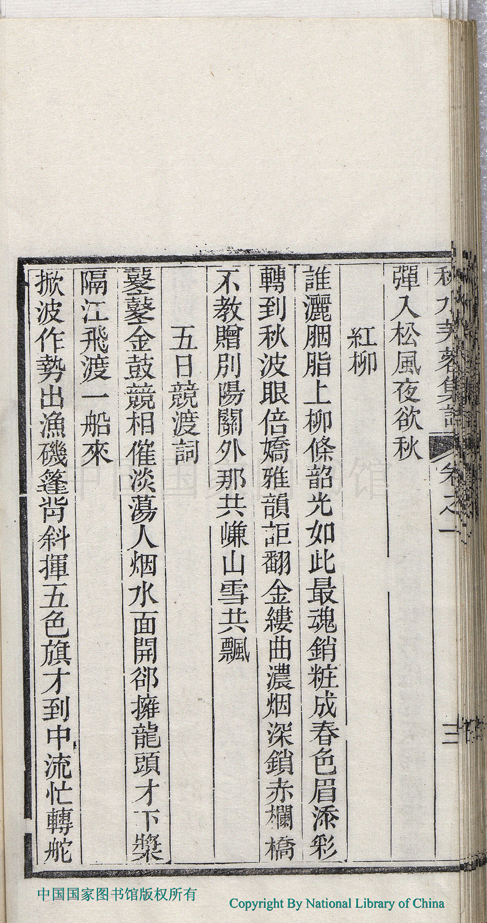 秋水芙蓉集詩 卷之一
彈入松風夜欲秋
紅柳
誰灑胭脂上柳條韶光如此最魂銷粧成春色眉添彩
轉到秋波眼倍嬌雅韻詎翻金縷曲濃烟深鎖赤欄橋
不教贈別陽關外那共嵰山雪共飄
五日競渡詞
鼕鼕金鼓競相催淡蕩人烟水面開郤擁龍頭才下槳
隔江飛渡一船來
掀波作勢出漁磯篷背斜揮五色旗才到中流忙轉舵
中国国家图书馆
中国国家图书馆版权所有
Copyright By National Library of China